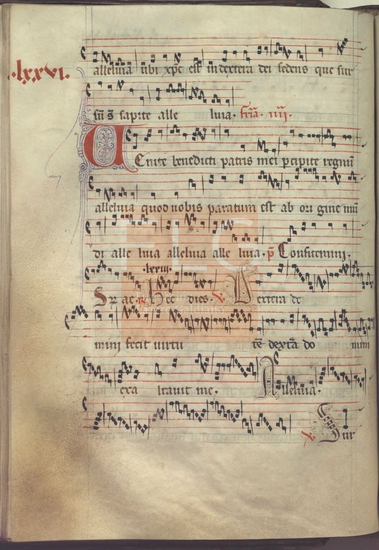 .lxxvi.
alleluia ubi xpc est in dextera dei sedens que sur
sūt sapite alle luia. fria. iiii.
Uenite benedicti patris mei percipite regnū
alleluia quod vobis paratum est ab origine mū
di alle luia alleluia alle luia. ps Confitemini.
.lxxiii.
Gr ac. R Hec dies. V Dextera do
mini fecit virtu tē dextera do mini
exa ltavit me. Alleluia.
V Sur